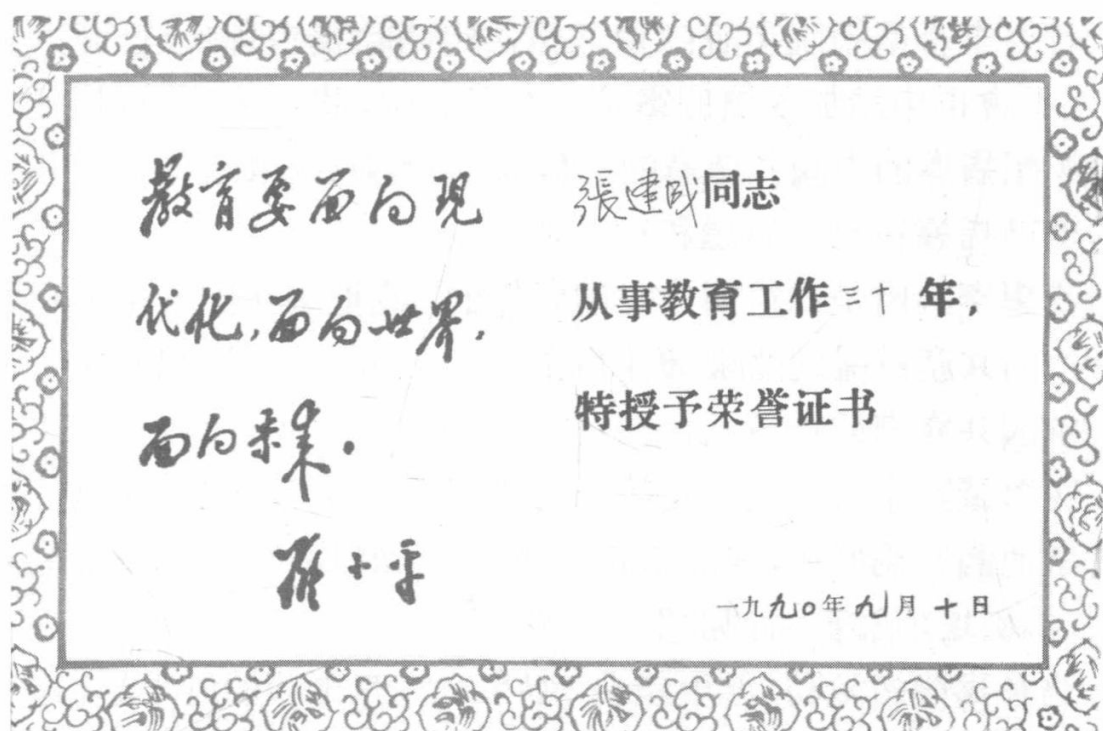 教育要面向现
代化，面向世界，
面向未来。
邓小平
張建成同志
从事教育工作三十年，
特授予荣誉证书
一九九〇年九月十日